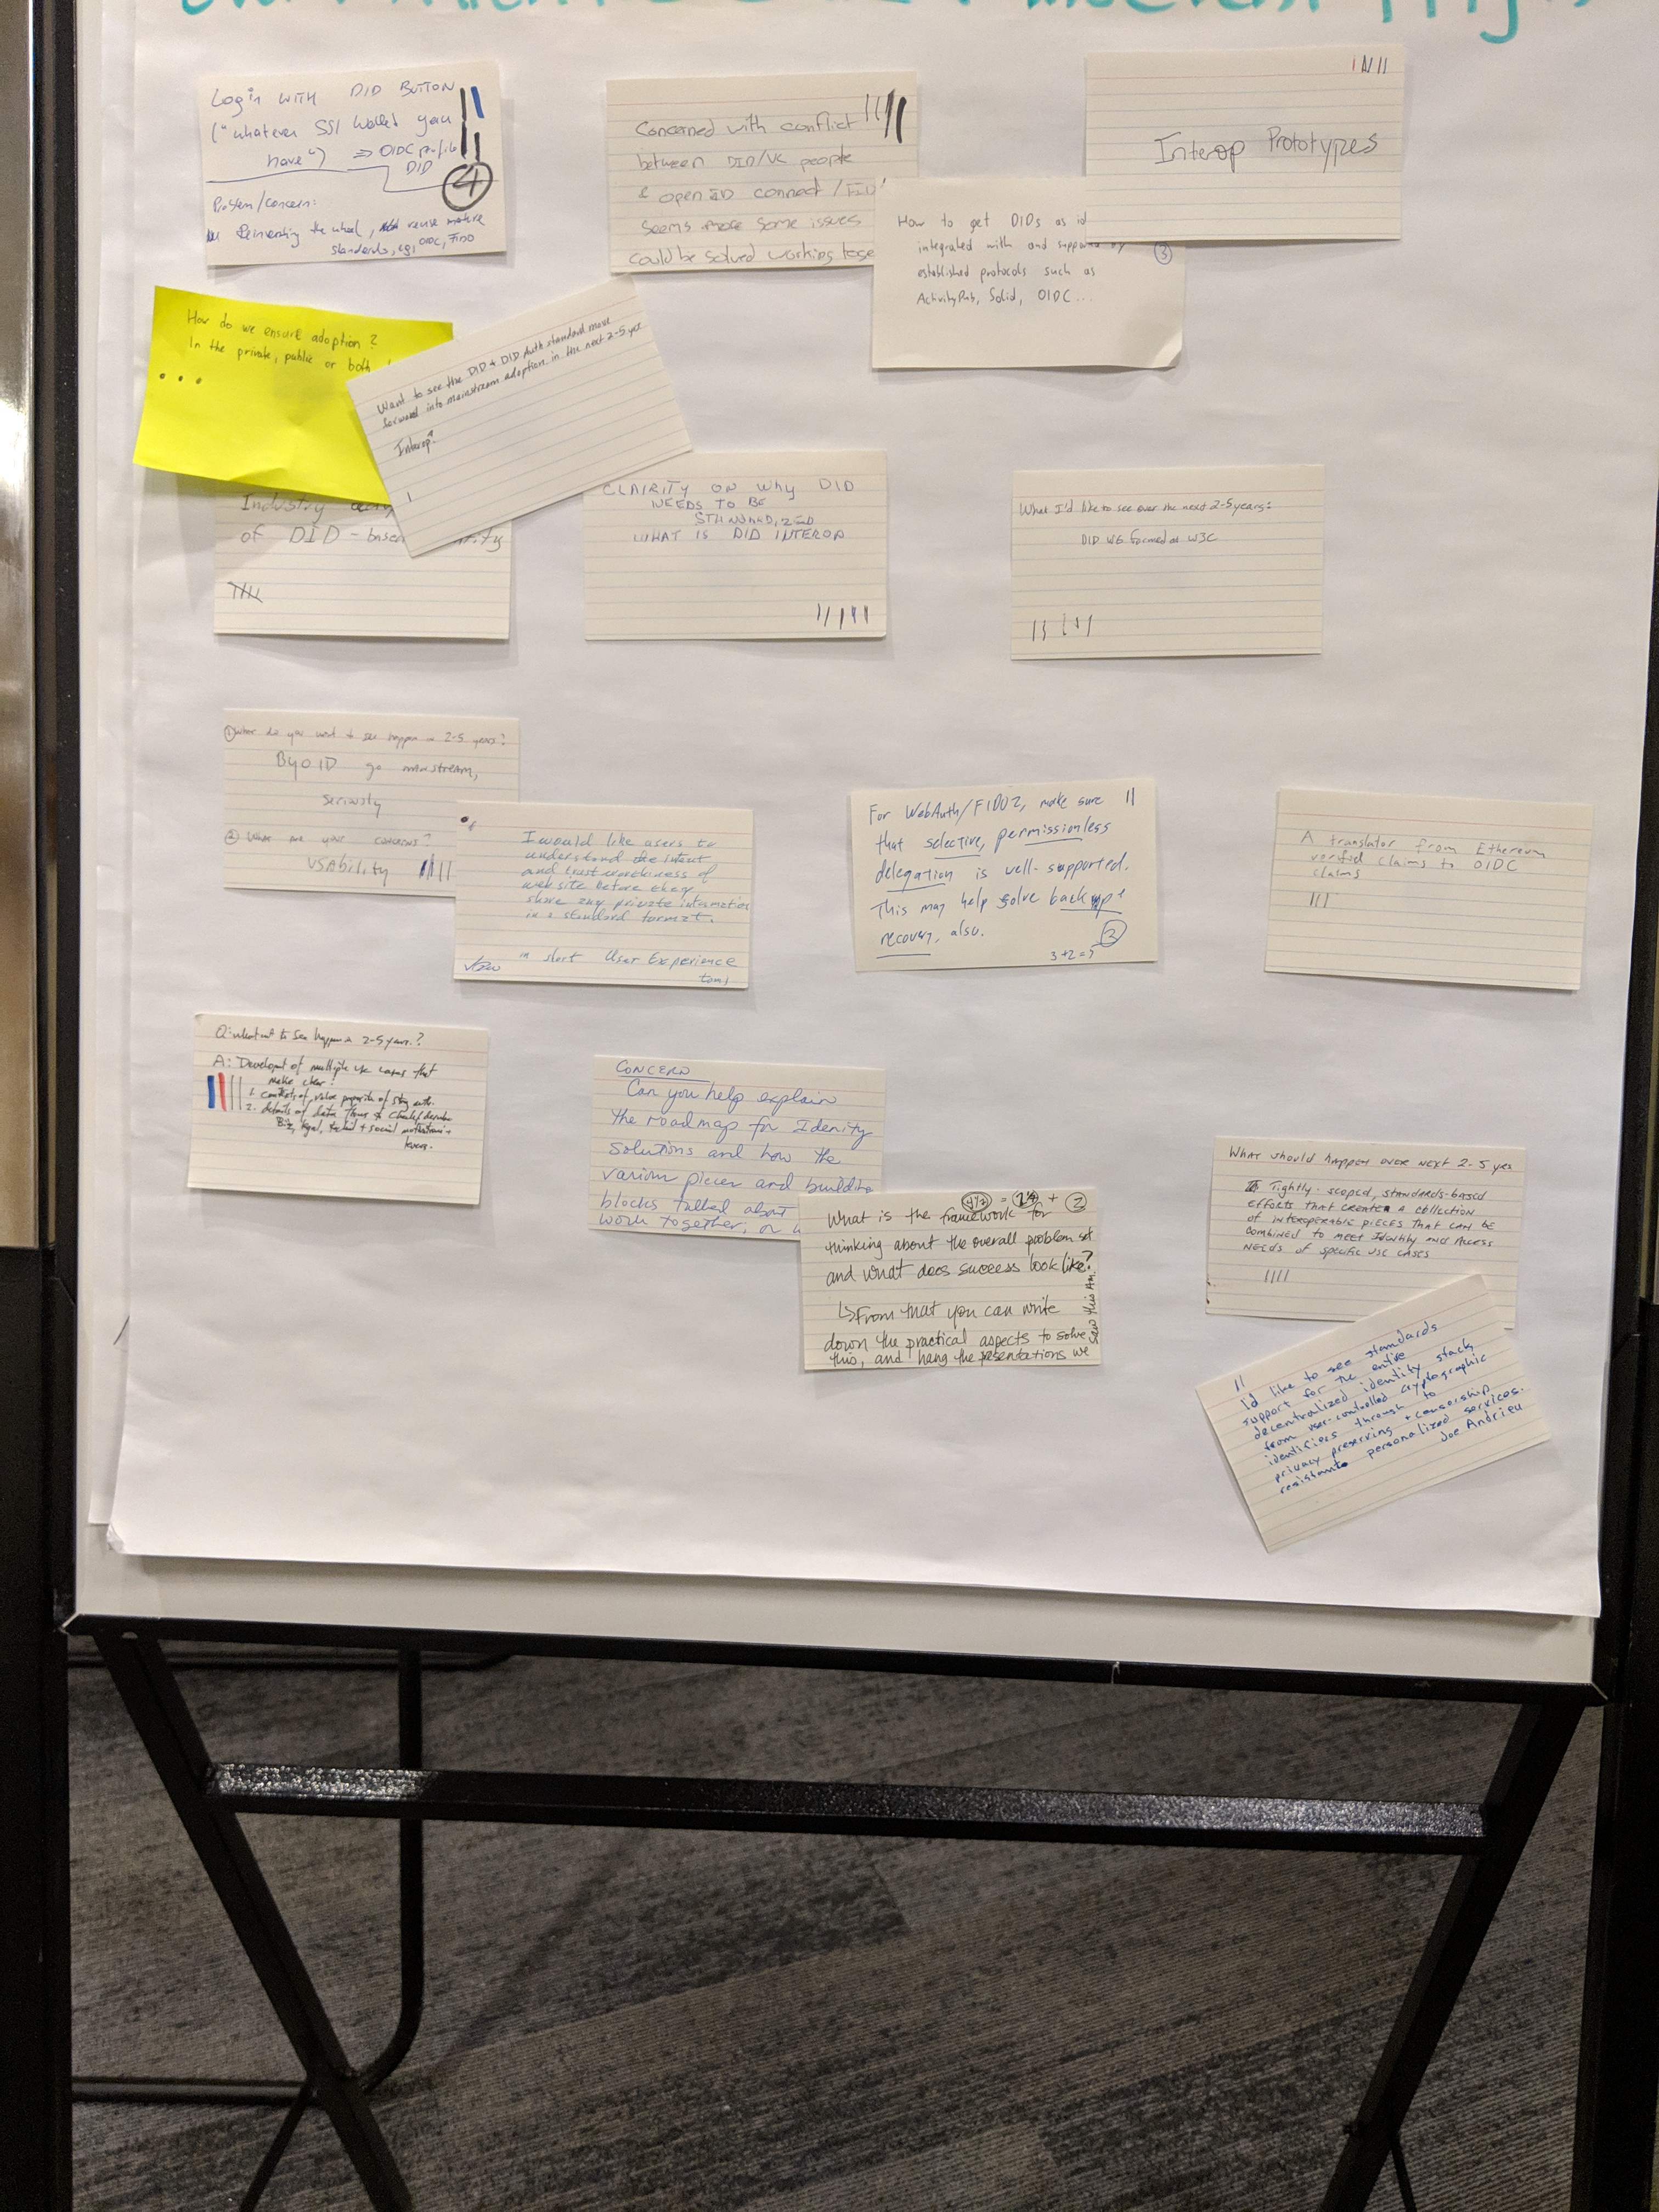 Login WITH DID BUTTON
("whatever SSI wallet you
have")  ⇒ OIDC profile
DID
4
Problem/concern:
Reinventing the wheel, reuse mature
standards, eg, OIDC, FIDO
Concerned with conflict
between DID/VC people
& open ID connect / FID
seems some issues
could be solved working toge
Interop Prototypes
How to get DIDs as id
integrated with and suppo by
established protocols such as
ActivityPub, Solid, OIDC...
3
How do we ensure adoption?
In the private, public or both
...
Want to see the DID + DID Auth standard move
forward into mainstream adoption in the next 2-5 yrs
Interop?
Industry
of DID - base
CLAIRITY ON Why DID
NEEDS TO BE
WHAT IS DID INTEROP
What I'd like to see over the next 2-5 years:
DID WG formed at W3C
① What do you want to see happen in 2-5 years?
BYOID go mainstream,
seriously
② What are your concerns?
USAbility
I would like users to
understand the intent
and trustworthiness of
web site before they
share any private information
in a standard format.
in short User Experience
tom
For WebAuth/FIDO2, make sure
that selective, permissionless
delegation is well-supported.
This may help solve backup +
recovery, also.
2
3+2=?
A translator from Ethereum
verified claims to OIDC
claims
Q: what to See happen in 2-5 years.?
A: Developmt of multiple use cases that
make clear:
CONCERN
Can you help explain
the roadmap for Idenity
solutions and how the
various pieces and building
blocks talked about
work together, or
What is the framework for
thinking about the overall problem set
and what does success look like?
↳From that you can write
down the practical aspects to solve
this, and hang the presentations we
saw this AM.
What should happen over next 2-5 yrs
Tightly-scoped, standards-based
efforts that create a collection
of interoperable pieces that can be
combined to meet Identity and Access
needs of specific use cases
I'd like to see standards
support for the entire
decentralized identity stack
from user-controlled cryptographic
identifiers through to
privacy preserving + censorship
resistant personalized services.
Joe Andrieu